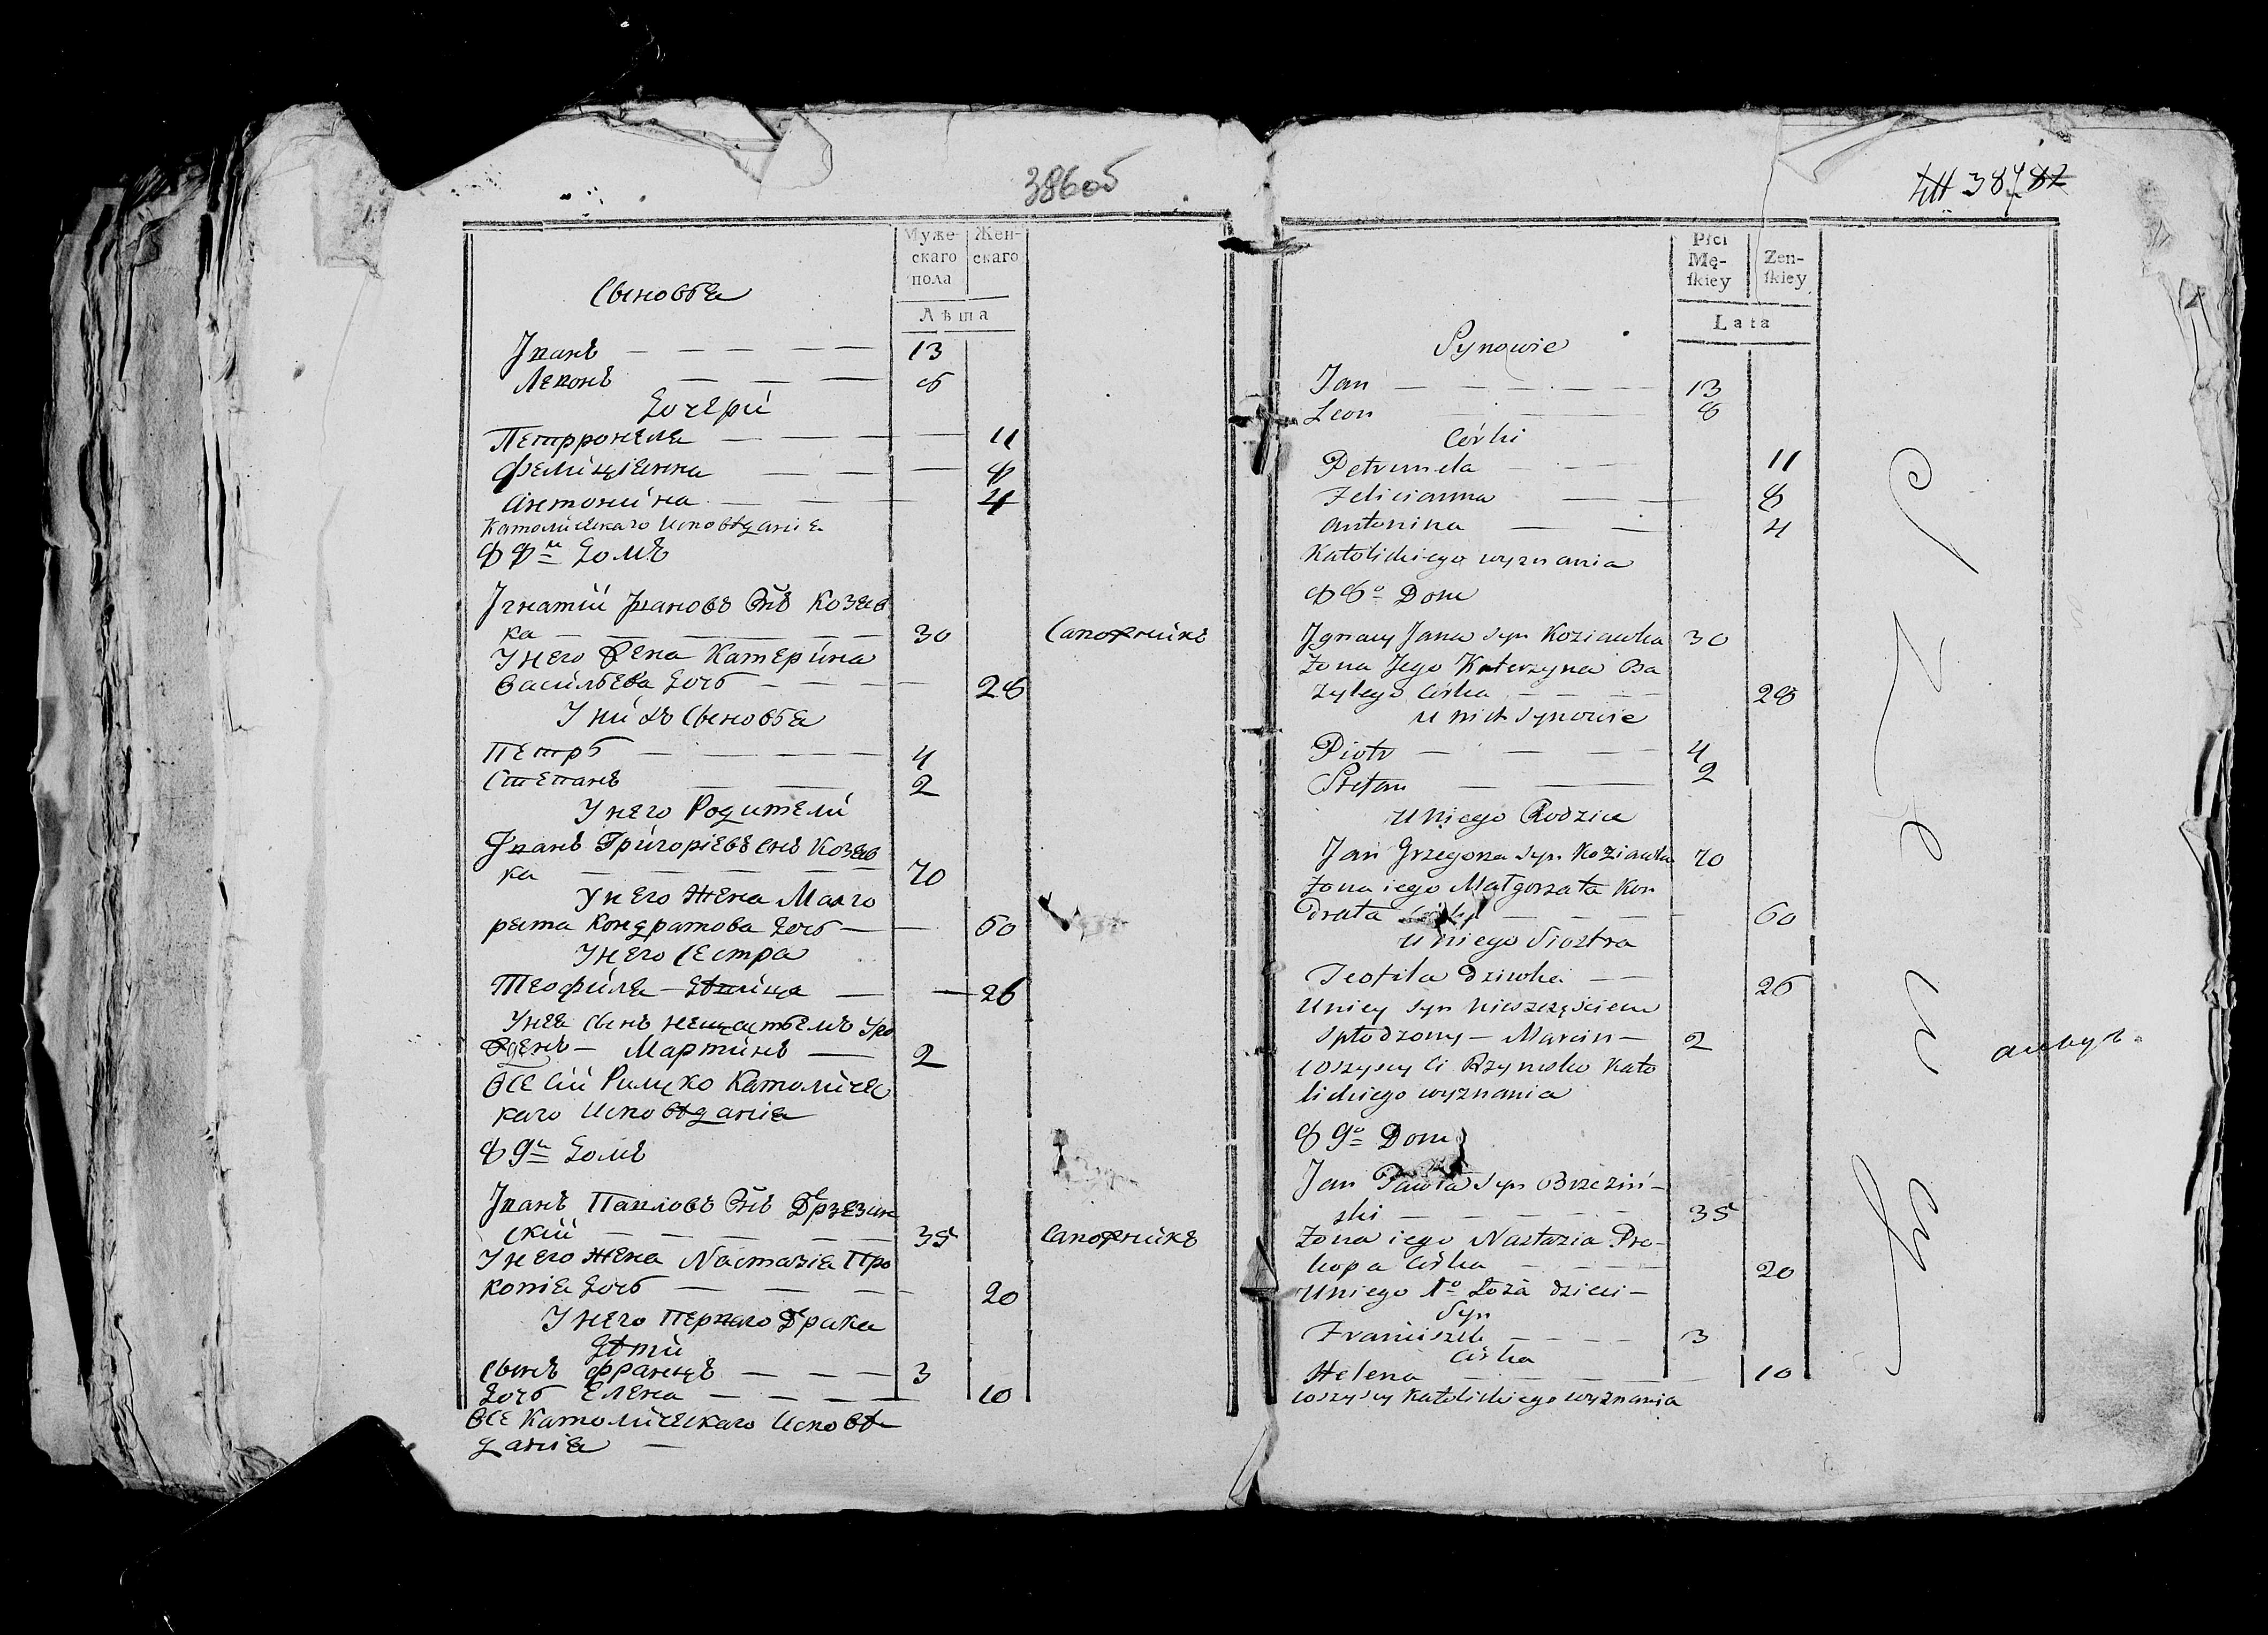 386об
Муже-
скаго
пола
Жен-
скаго
Лѣта
Сыновья
Іванъ — — — — — 13
Леонъ — — — 8
Дочери
Петрронеля — — — — 11
Фелиціянна — — — 8
Антонина — — — 4
Католическаго Исповѣданія
88й Домъ
Ігнатій Івановъ Снъ Козяв
ка — — — — — — 30 Сапожникъ
У него Жена Катерина
Васильева Дочь — — — — 28
У нихъ Сыновья
Петръ — — — — — 4
Степанъ — — 2
У него Родители
Іванъ Григоріевъ снъ Козяв
ка — — — — — 70
У него Жена Малго
рата Кондратова Дочь — — 60
У него Сестра
Теофиля — Дѣвица — — 26
У нея Сынъ нещастьемъ Уро
жденъ — Мартинъ — 2
Всѣ сіи Римско Католичес
каго Исповѣданія
89й Домъ
Іванъ Павловъ Снъ Брзезин
скій — — — — — 35 Сапожникъ
У него Жена Настазія Про
копія Дочь — — — — 20
У него Перваго Брака
Дѣти
Сынъ Францъ — — — 3
Дочь Елена — — — — 10
Всѣ Католическаго Исповѣ-
данія —
387
Płci
Mę-
ſkiey
Zen-
ſkiey
Lata
Synowie
Jan — — — — — — 13
Leon — — 8
Córki
Petrunela — — — 11
Felicianna — — 8
Antonina — — 4
Katolickiego wyznania
88o Dom
Jgnacy Jana syn Koziawka 30
Zona Jego Katerzyna Ba
zylego Córka — — — — 28
u nich synowie
Piotr — — — 4
Stefan — — 2
u niego Rodzice
Jan Grzegorza syn Koziawka 70
Zona iego Małgorzata Kon
drata — — — — 60
u niego Siostra
Teofila Dziewka — — 26
u niey syn nieszczęściem
spłodzony — Marcin — 2
wszyscy ci Rzymsko Kato
lickiego wyznania
89o Dom
Jan Pawła syn Brzeziń-
ski — — — — — 35
Zona iego Nastazia Pro-
kopa Córka — — — — 20
u niego 1o Łoża dzieci —
Syn
Franciszek — — — — 3
Córka
Helena — — — — — 10
wszyscy Katolickiego wyznania